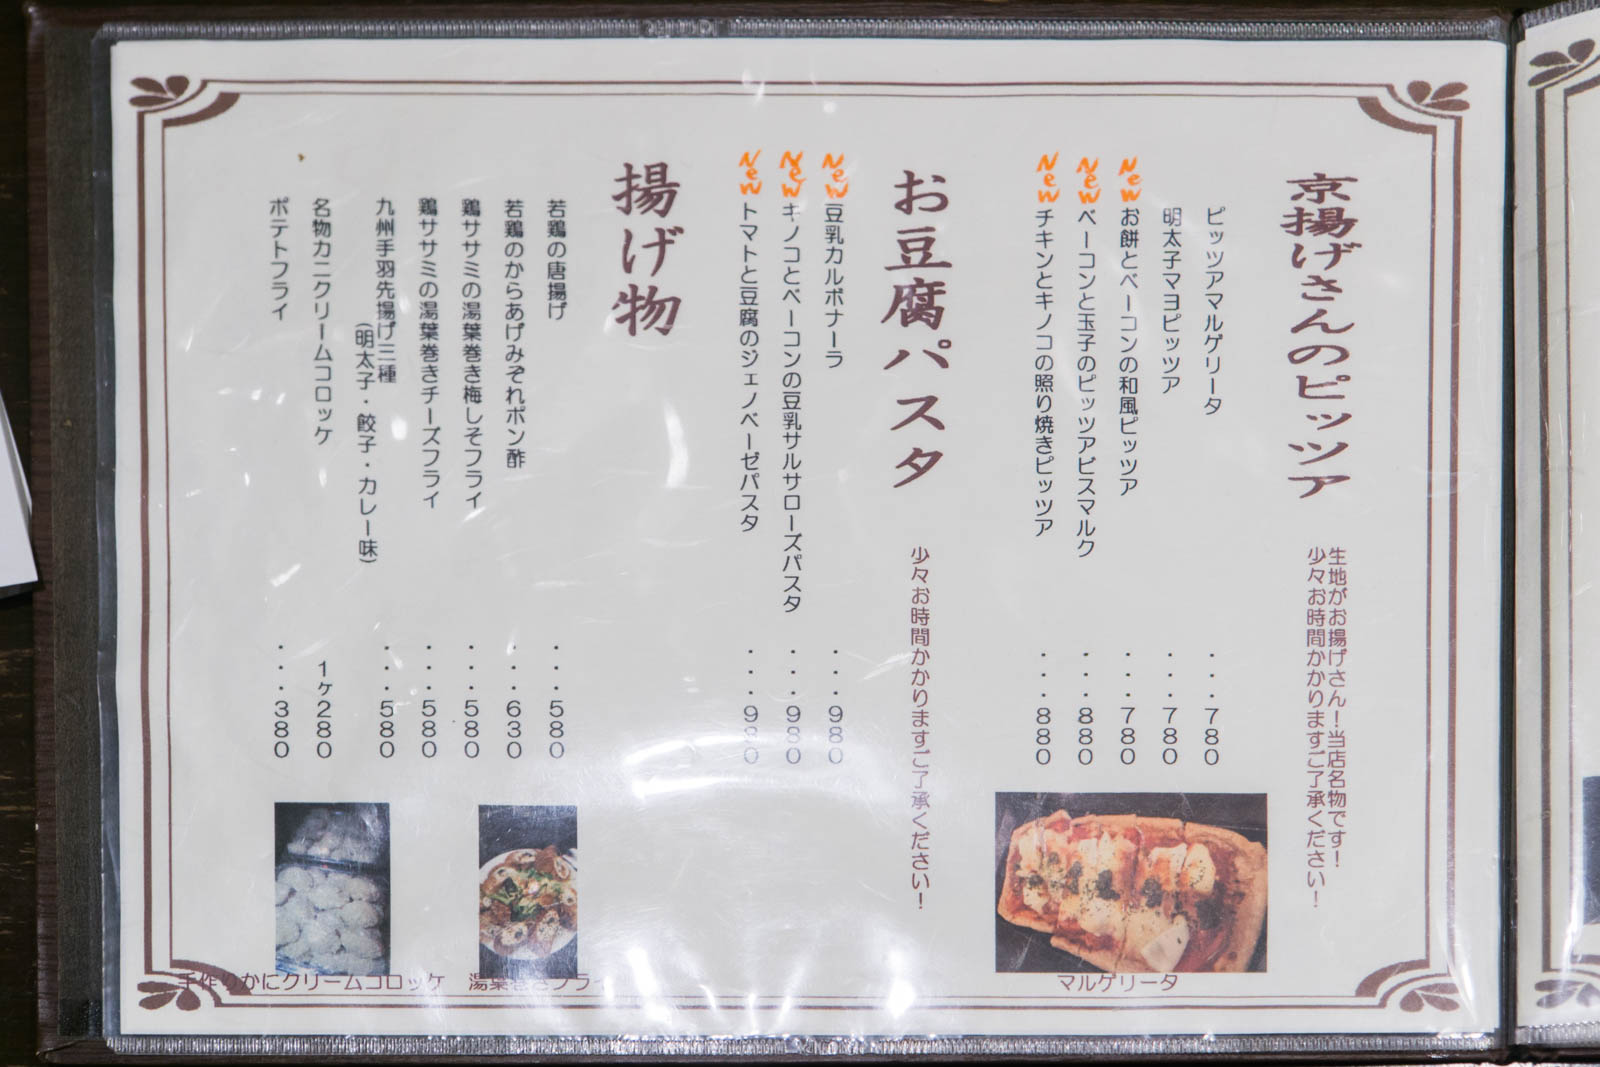 京揚げさんのピッツア
生地がお揚げさん！当店名物です！
少々お時間かかりますご了承ください！
ピッツアマルゲリータ ・・・780
明太子マヨピッツア ・・・780
New お餅とベーコンの和風ピッツア ・・・780
New ベーコンと玉子のピッツアビスマルク ・・・880
New チキンとキノコの照り焼きピッツア ・・・880
マルゲリータ
お豆腐パスタ
少々お時間かかりますご了承ください！
New 豆乳カルボナーラ ・・・980
New キノコとベーコンの豆乳サルサローズパスタ ・・・980
New トマトと豆腐のジェノベーゼパスタ ・・・980
揚げ物
若鶏の唐揚げ ・・・580
若鶏のからあげみぞれポン酢 ・・・630
鶏ササミの湯葉巻き梅しそフライ ・・・580
鶏ササミの湯葉巻きチーズフライ ・・・580
九州手羽先揚げ三種 ・・・580
(明太子・餃子・カレー味)
名物カニクリームコロッケ 1ヶ280
ポテトフライ ・・・380
湯葉巻きフライ
手作りかにクリームコロッケ